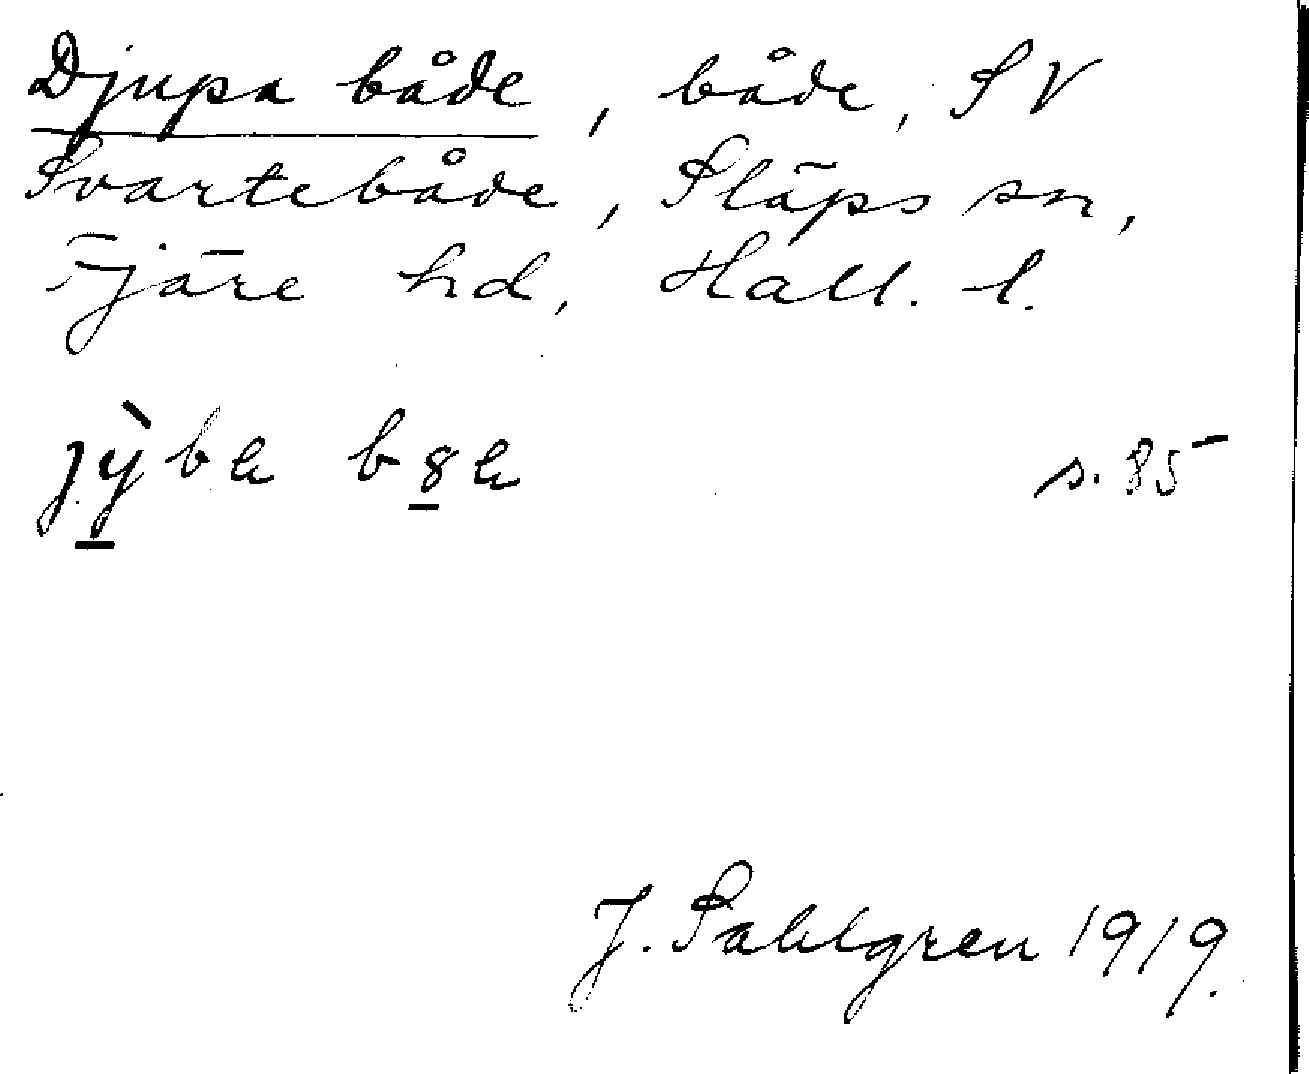 Djupa både, både, SV
Svartebåde, Släps sn,
Fjäre hd, Hall. l.
jỳ̱ba b8̱a s. 85
J. Sahlgren 1919.